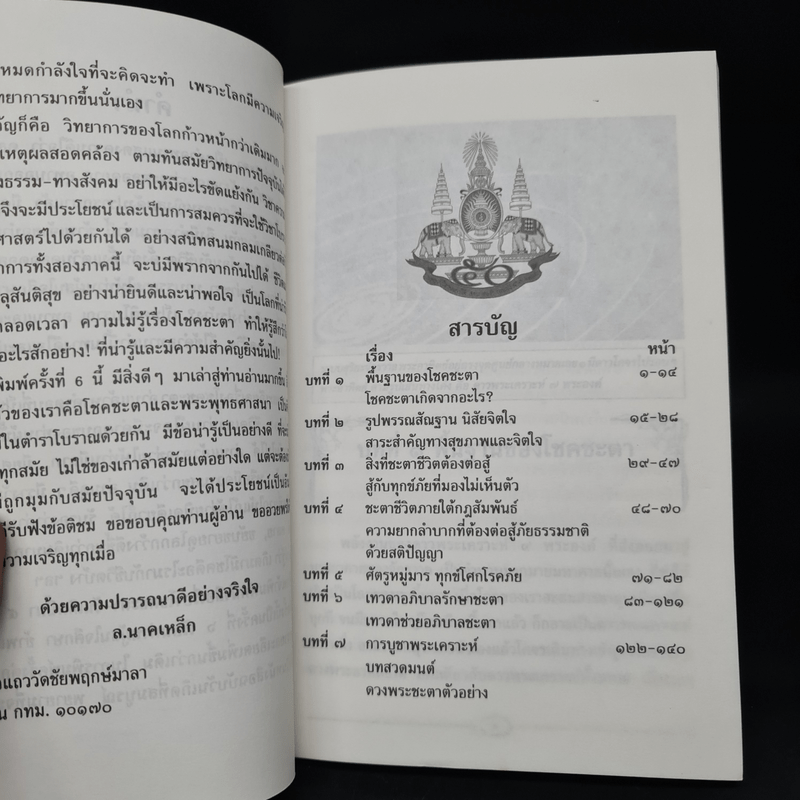 หมดกำลังใจที่จะคิดจะทำ เพราะโลกมีความเจริญ
ทยาการมากขึ้นนั่นเอง
ัญก็คือ วิทยาการของโลกก้าวหน้ากว่าเดิมมาก
เหตุผลสอดคล้อง ตามทันสมัยวิทยาการปัจจุบัน
งธรรม-ทางสังคม อย่าให้มีอะไรขัดแย้งกัน
จึงจะมีประโยชน์ และเป็นการสมควรที่จะใช้วิชา
ศาสตร์ไปด้วยกันได้ อย่างสนิทสนมกลมเกลียว
าการทั้งสองภาคนี้ จะบ่มีพรากจากกันไปได้
ลุสันติสุข อย่างน่ายินดีและน่าพอใจ เป็นโลกที่
ลอดเวลา ความไม่รู้เรื่องโชคชะตา ทำให้รู้สึก
อะไรสักอย่าง! ที่น่ารู้และมีความสำคัญยิ่งนั้นไป!
พิมพ์ครั้งที่ 6 นี้ มีสิ่งดีๆ มาเล่าสู่ท่านอ่านมากขึ้น
ัวของเราคือโชคชะตาและพระพุทธศาสนา
ในตำราโบราณด้วยกัน มีข้อน่ารู้เป็นอย่างดี
ทุกสมัย ไม่ใช่ของเก่าล้าสมัยแต่อย่างใด แต่จะต้อง
ถูกมุมกับสมัยปัจจุบัน จะได้ประโยชน์เป็น
รับฟังข้อติชม ขอขอบคุณท่านผู้อ่าน ขออวยพร
ความเจริญทุกเมื่อ
ด้วยความปรารถนาดีอย่างจริงใจ
ล.นาคเหล็ก
แถววัดชัยพฤกษ์มาลา
น กทม. ๑๐๑๗๐
๕๐
สารบัญ
เรื่อง หน้า
บทที่ ๑ พื้นฐานของโชคชะตา ๑-๑๔
โชคชะตาเกิดจากอะไร?
บทที่ ๒ รูปพรรณสัณฐาน นิสัยจิตใจ ๑๕-๒๘
สาระสำคัญทางสุขภาพและจิตใจ
บทที่ ๓ สิ่งที่ชะตาชีวิตต้องต่อสู้ ๒๙-๔๗
สู้กับทุกข์ภัยที่มองไม่เห็นตัว
บทที่ ๔ ชะตาชีวิตภายใต้กฎสัมพันธ์ ๔๘-๗๐
ความยากลำบากที่ต้องต่อสู้ภัยธรรมชาติ
ด้วยสติปัญญา
บทที่ ๕ ศัตรูหมู่มาร ทุกข์โศกโรคภัย ๗๑-๘๒
บทที่ ๖ เทวดาอภิบาลรักษาชะตา ๘๓-๑๒๑
เทวดาช่วยอภิบาลชะตา
บทที่ ๗ การบูชาพระเคราะห์ ๑๒๒-๑๔๐
บทสวดมนต์
ดวงพระชะตาตัวอย่าง